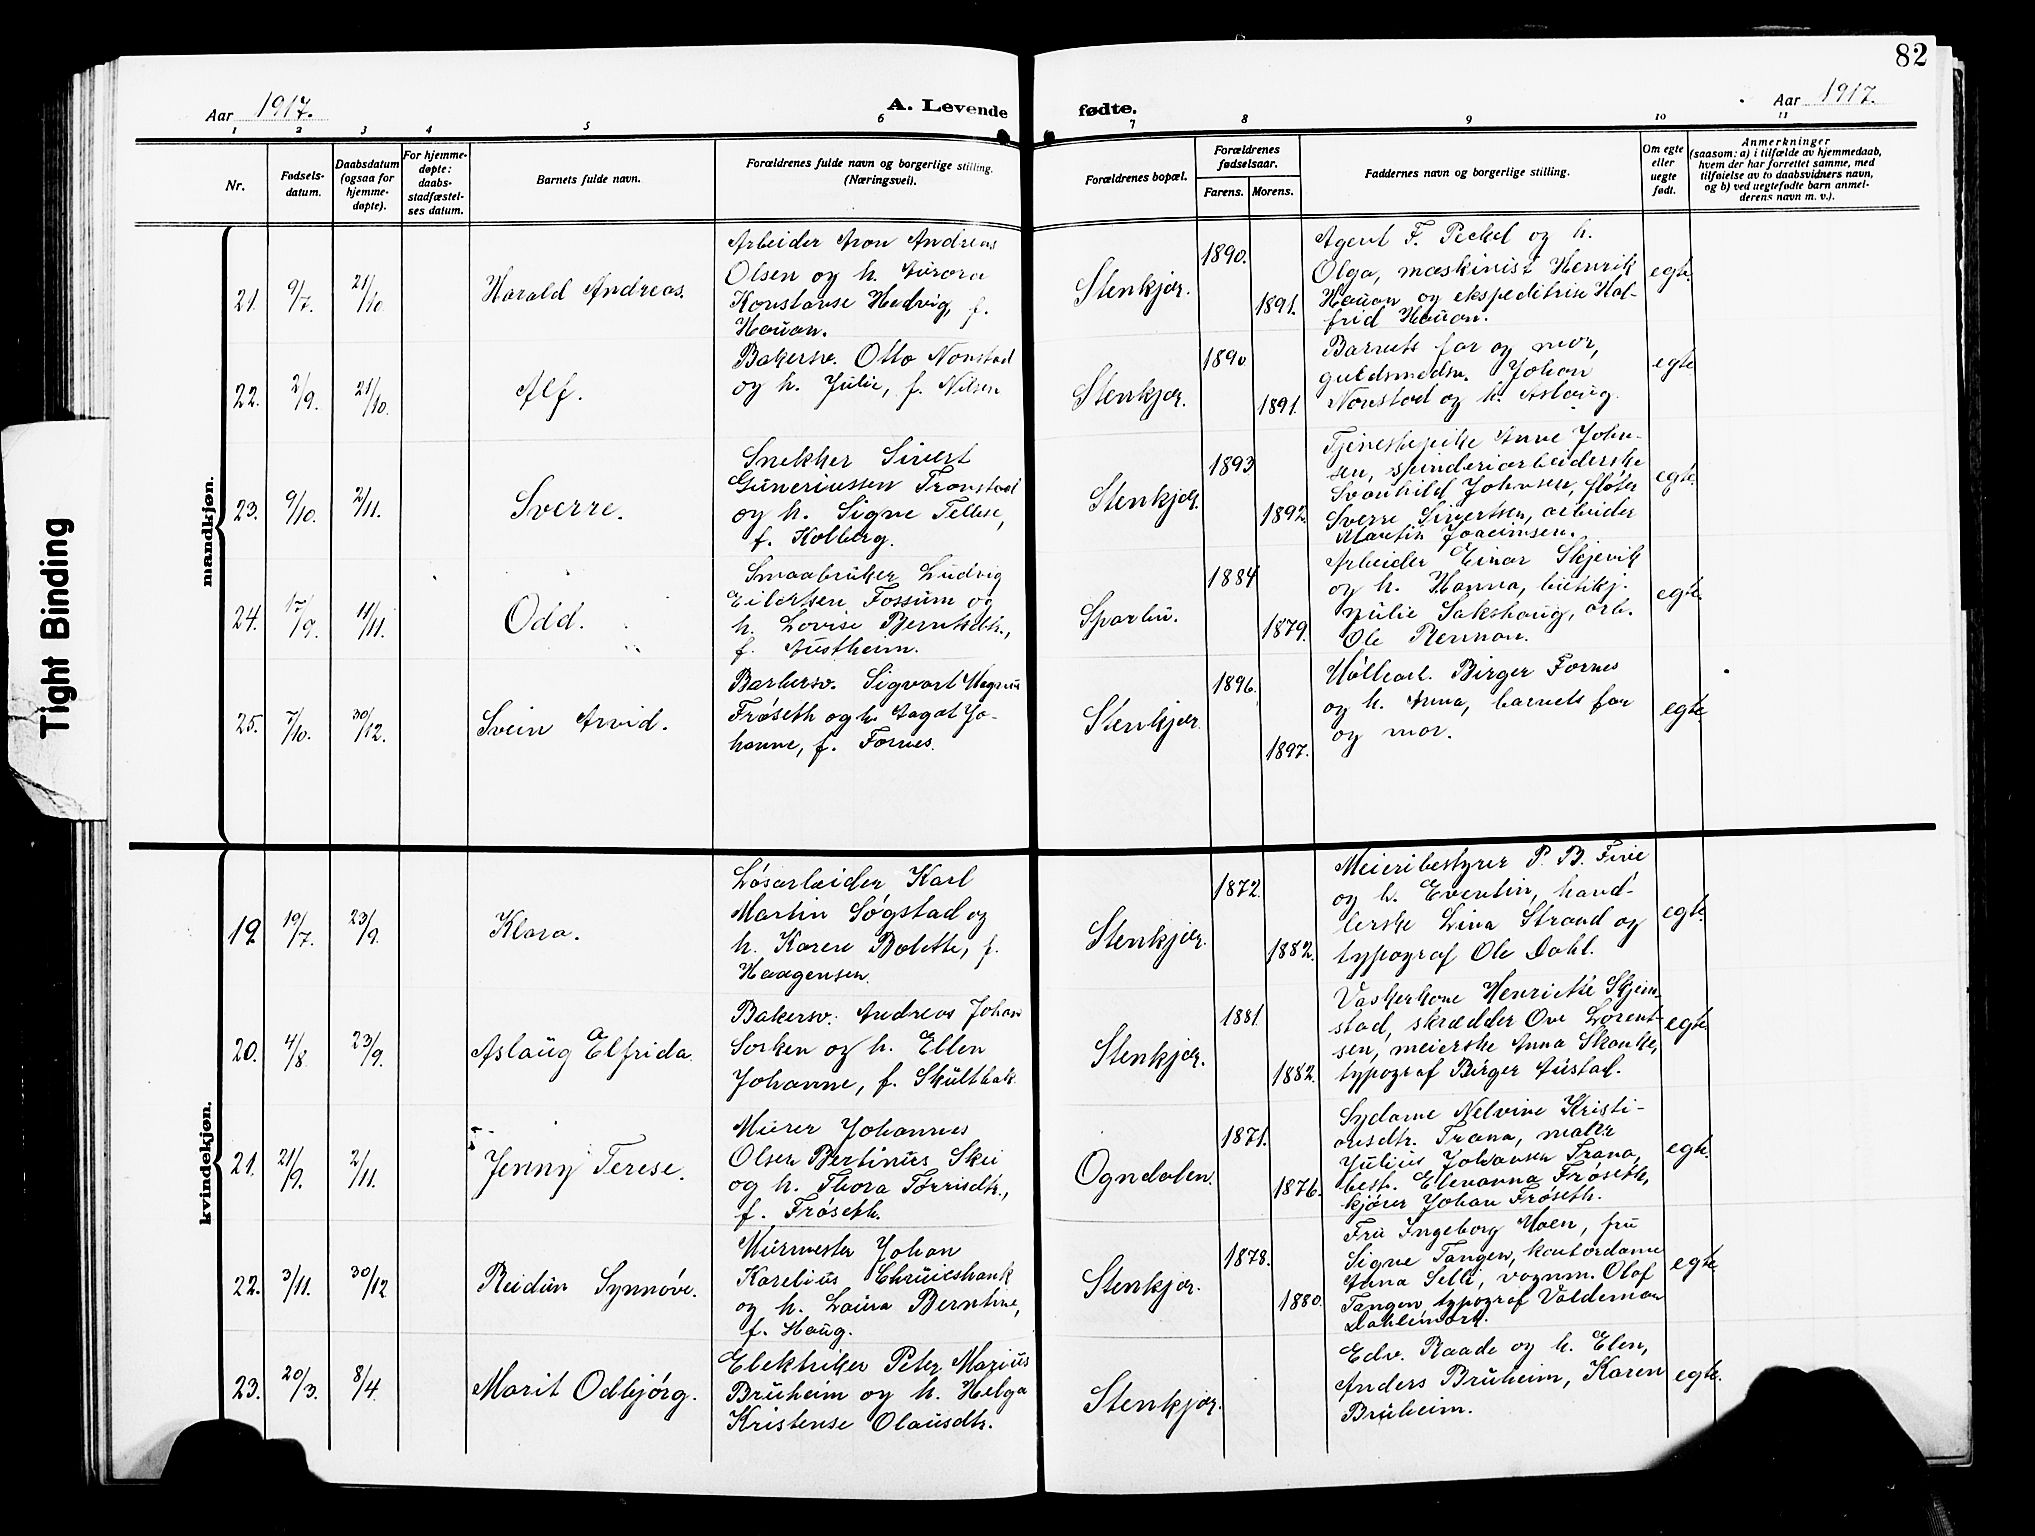 82
Aar 1917.
A. Levende fødte.
Aar 1917.
1 2 3 4 5 6 7 8 9 10 11
Nr.
Fødsels-
datum.
Daabsdatum
(ogsaa for
hjemme-
døpte).
For hjemme-
døpte:
daabs-
stadfæstel-
ses datum.
Barnets fulde navn.
Forældrenes fulde navn og borgerlige stilling.
(Næringsvei).
Forældrenes bopæl.
Forældrenes
fødselsaar.
Farens. Morens.
Faddernes navn og borgerlige stilling.
Om egte
eller
uegte
født.
Anmerkninger
(saasom: a) i tilfælde av hjemmedaab,
hvem der har forrettet samme, med
tilføielse av to daabsvidners navn,
og b) ved uegtefødte barn anmel-
derens navn m. v.).
Tight Binding
mandkjøn.
21. 9/7. 21/10. Harald Andreas.
Arbeider Aron Andreas
Olsen og h. Aurora
Konstanse Hedvig, f.
Hauan.
Stenkjær.
1890.
1891.
Agent F. Peckel og h.
Olga, maskinist Henrik
Hauan og ekspeditrise Hal-
frid Hauan.
egte.
22. 2/9. 21/10. Alf.
Bakersv. Otto Nonstad
og h. Julie, f. Nilsen
Stenkjær.
1890
1891.
Barnets far og mor,
guldsmedsv. Johan
Nonstad og h. Aslaug.
egte
23. 9/10. 2/11. Sverre.
Snekker Sivert
Guneriussen Tronstad
og h. Signe Tellese,
f. Kolberg.
Stenkjær.
1893
1892.
Tjenestepike Anne John-
sen, spinderiarbeiderske
Svanhild Johnsen, fløter
Sverre Sivertsen, arbeider
Martin Joacimsen.
egte.
24. 17/9. 11/11. Odd.
Smaabruker Ludvig
Eilertsen Fossum og
h. Lovise Berntsdtr.,
f. Austheim.
Sparbu.
1884
1879.
Arbeider Einar Skjevik
og h. Hanna, butikj.
Julie Sakshaug, arb.
Ole Rennan.
egte.
25. 7/10. 30/12. Svein Arvid.
Barbersv. Sigvart Magnus
Frøseth og h. Aagot Jo-
hanne, f. Fornes.
Stenkjær.
1896.
1897.
Birger Fornes
og h. Anna, barnets far
og mor.
egte
kvindekjøn.
19. 19/7. 23/9. Klara.
Løsarbeider Karl
Martin Søgstad og
h. Karen Bolette, f.
Haagensen.
Stenkjær.
1872.
1882.
Meieribestyrer P. B. Five
og h. Eventin, hand-
lerske Lina Strand og
typograf Ole Dahl.
egte.
20. 4/8. 23/9. Aslaug Elfrida.
Bakersv. Andreas Johan
Sorken og h. Ellen
Johanne, f. Skultbak.
Stenkjær.
1881.
1882.
Vaskerkone Henriette Skjem-
stad, skrædder Ove Lorent-
sen, meierske Anna Skauke,
typograf Birger Austad.
egte
21. 21/9. 2/11. Jenny Terese.
Murer Johannes
Olsen Bertinus Skei
og h. Thora Torrisdtr.,
f. Frøseth.
Ogndalen.
1871.
1876.
Sydame Nelvine Kristi-
ansdtr. Trana, maler
Julius Johansen Trana,
best. Elenanna Frøseth,
kjører Johan Frøseth.
egte.
22. 3/11. 30/12. Reidun Synnøve.
Murmester Johan
Karelius
og h. Laura Berntine,
f. Haug.
Stenkjær.
1878.
1880.
Fru Ingeborg Moen, fru
Signe Tangen, kontordame
Anna Selli, vognm. Olaf
Tangen, typograf Valdemar
egte.
23. 20/3. 8/4. Marit Odbjørg.
Elektriker Peter Marius
Bruheim og h. Helga
Kristense Olausdtr.
Stenkjær.
Edv. Raade og h. Elen,
Anders Bruheim, Karen
Bruheim.
egte.